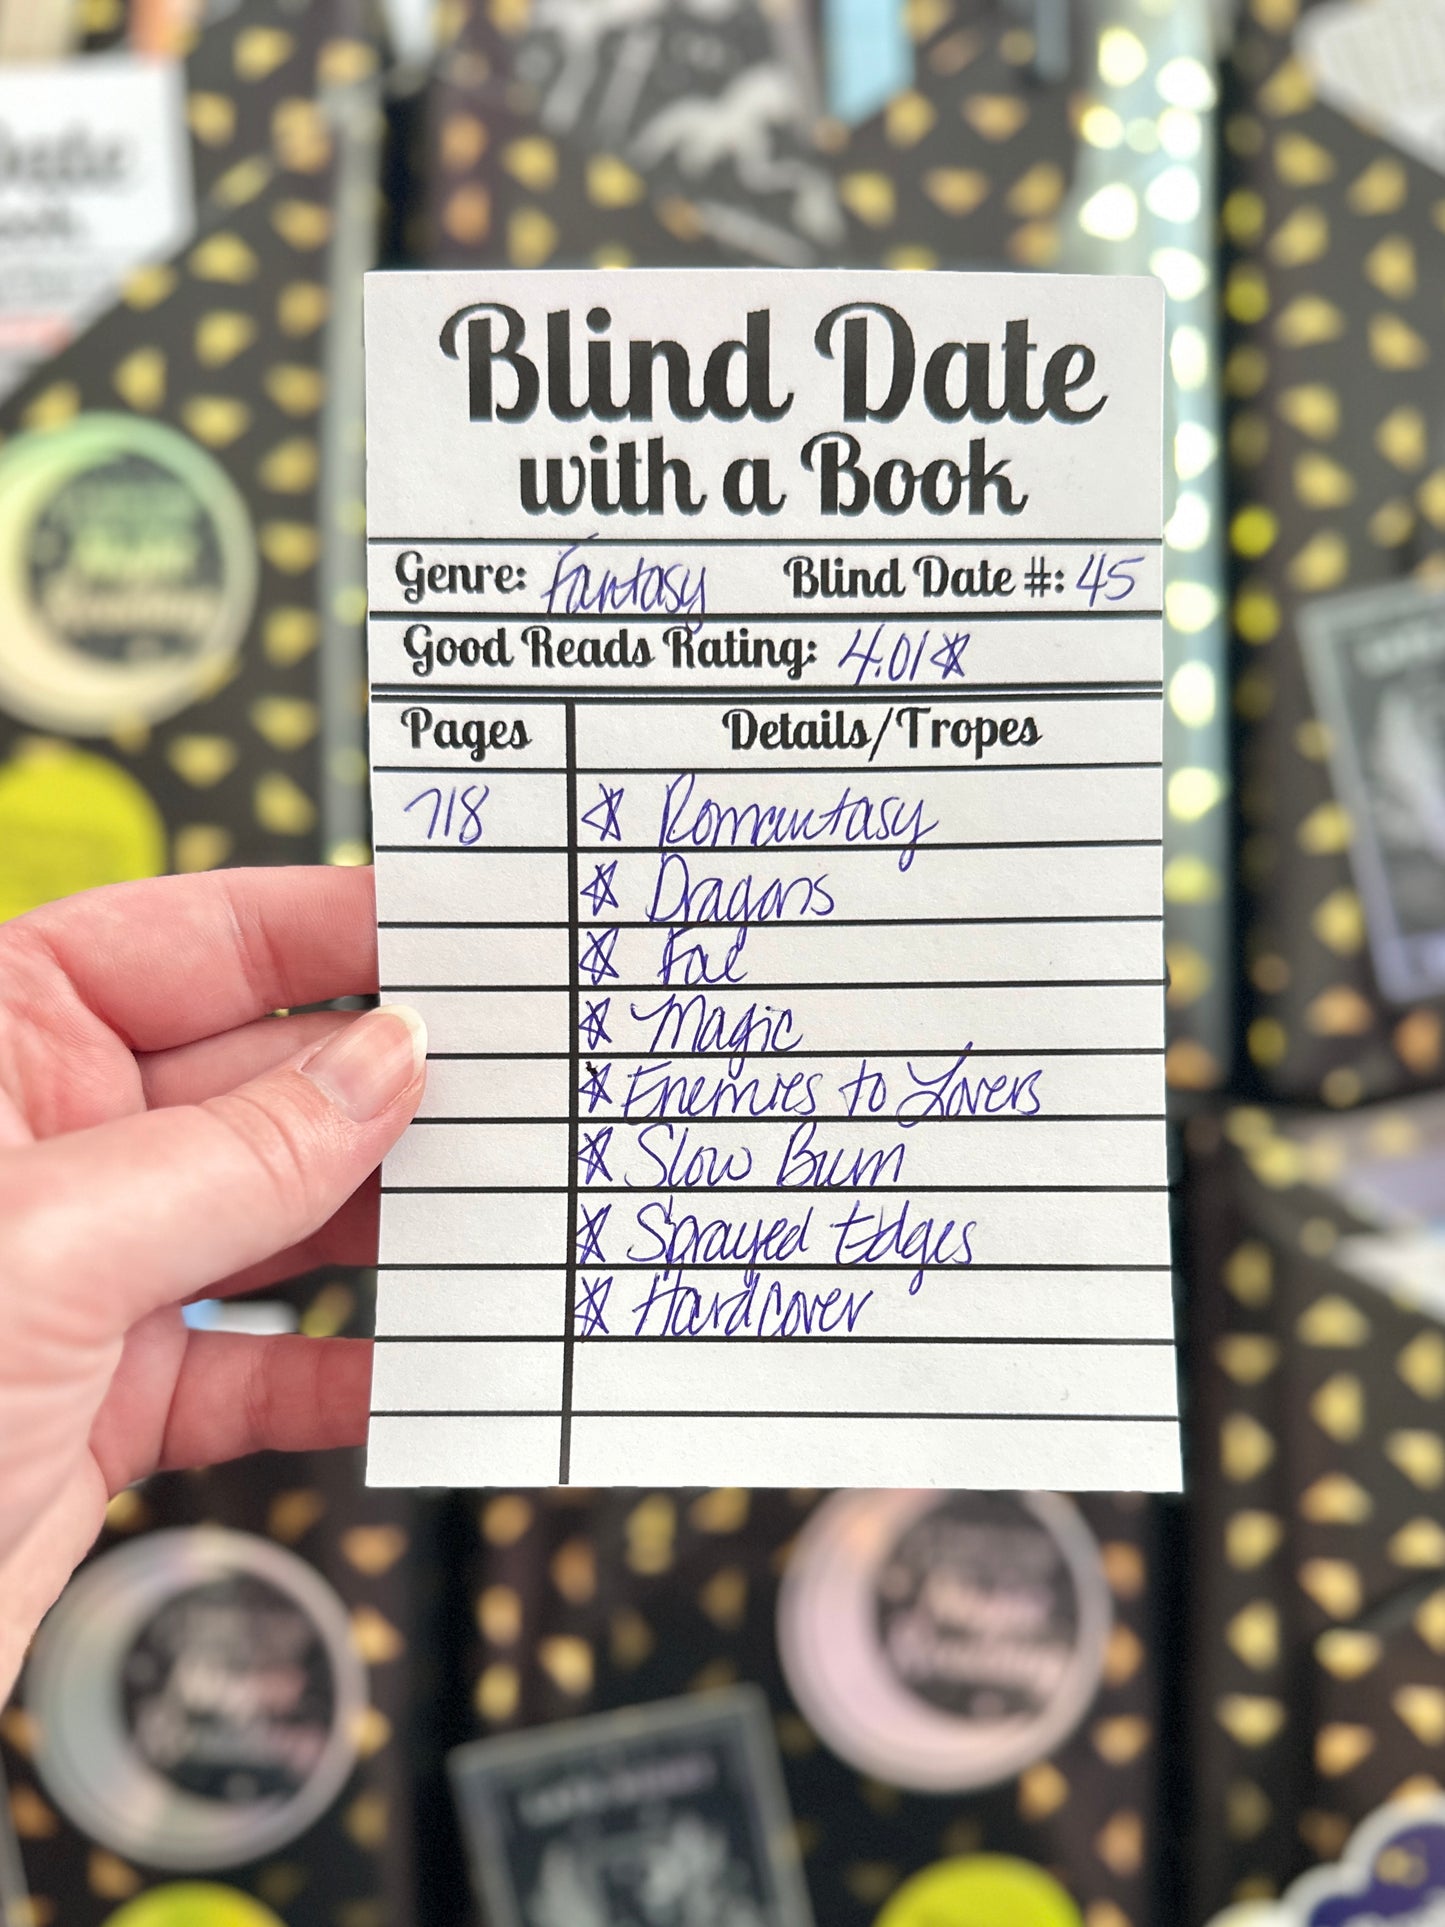 Blind Date
with a Book
Genre: Fantasy Blind Date #: 45
Good Reads Rating: 4.01☆
Pages Details/Tropes
718 ☆ Romantasy
☆ Dragons
☆ Fae
☆ Magic
☆ Enemies to Lovers
☆ Slow Burn
☆ Sprayed Edges
☆ Hardcover